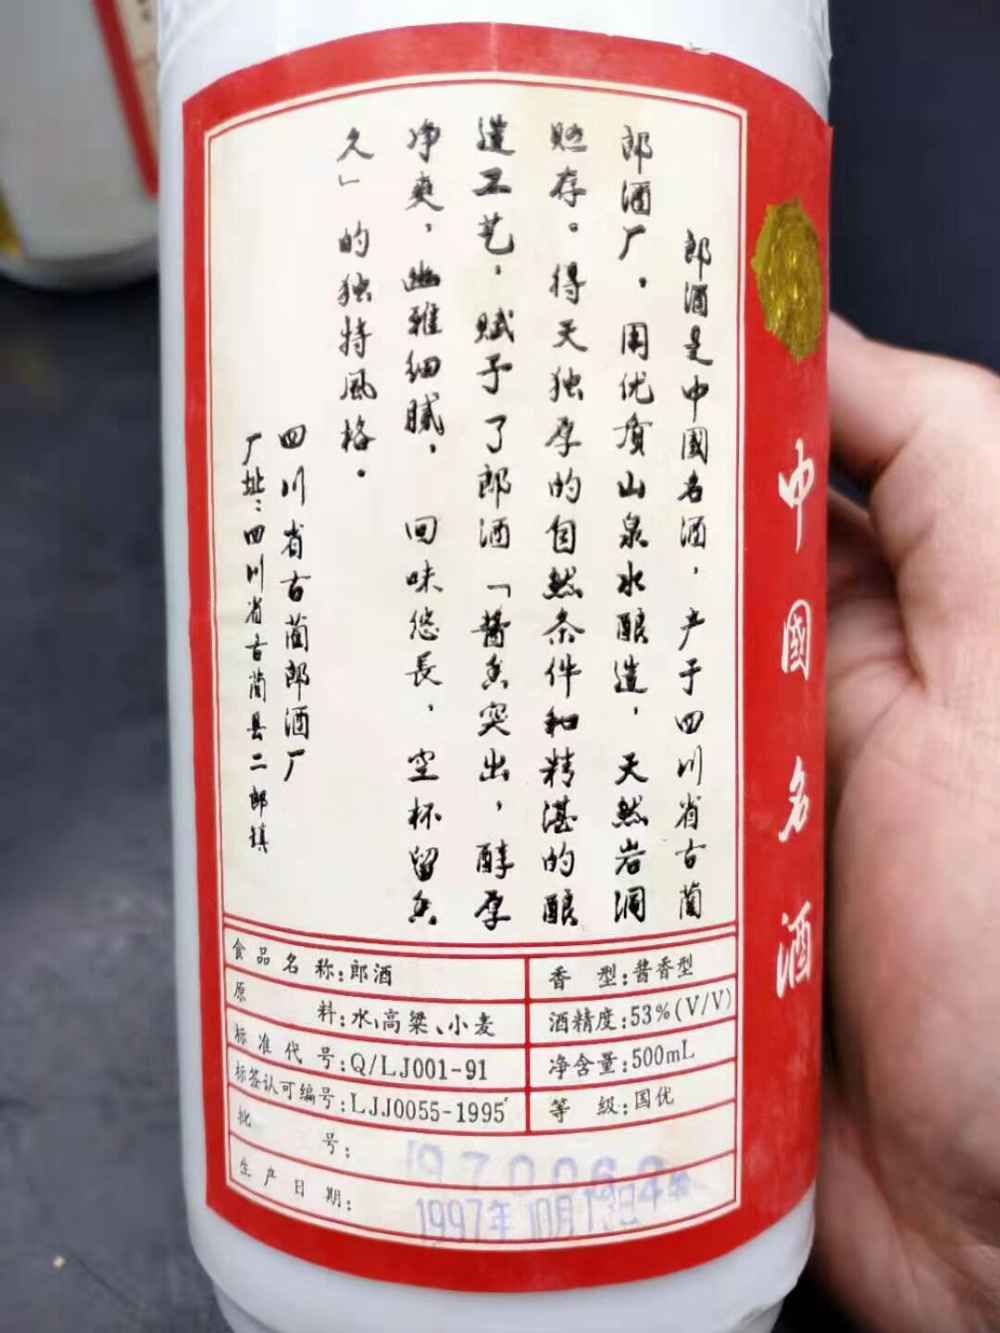 郎酒是中國名酒，产于四川省古蔺
郎酒厂。用优质山泉水酿造，天然岩洞
贮存。得天独厚的自然条件和精湛的酿
造工艺，赋予了郎酒「酱香突出，醇厚
净爽，幽雅细腻，回味悠長，空杯留香
久」的独特風格。
四川省古蔺郎酒厂
厂址：四川省古蔺县二郎镇
中國名酒
食品名称：郎酒
香型：酱香型
原料：水、高粱、小麦
酒精度：53%(V/V)
标准代号：Q/LJ001-91
净含量：500mL
标签认可编号：LJJ0055-1995
等级：国优
批号：
生产日期：1997年10月